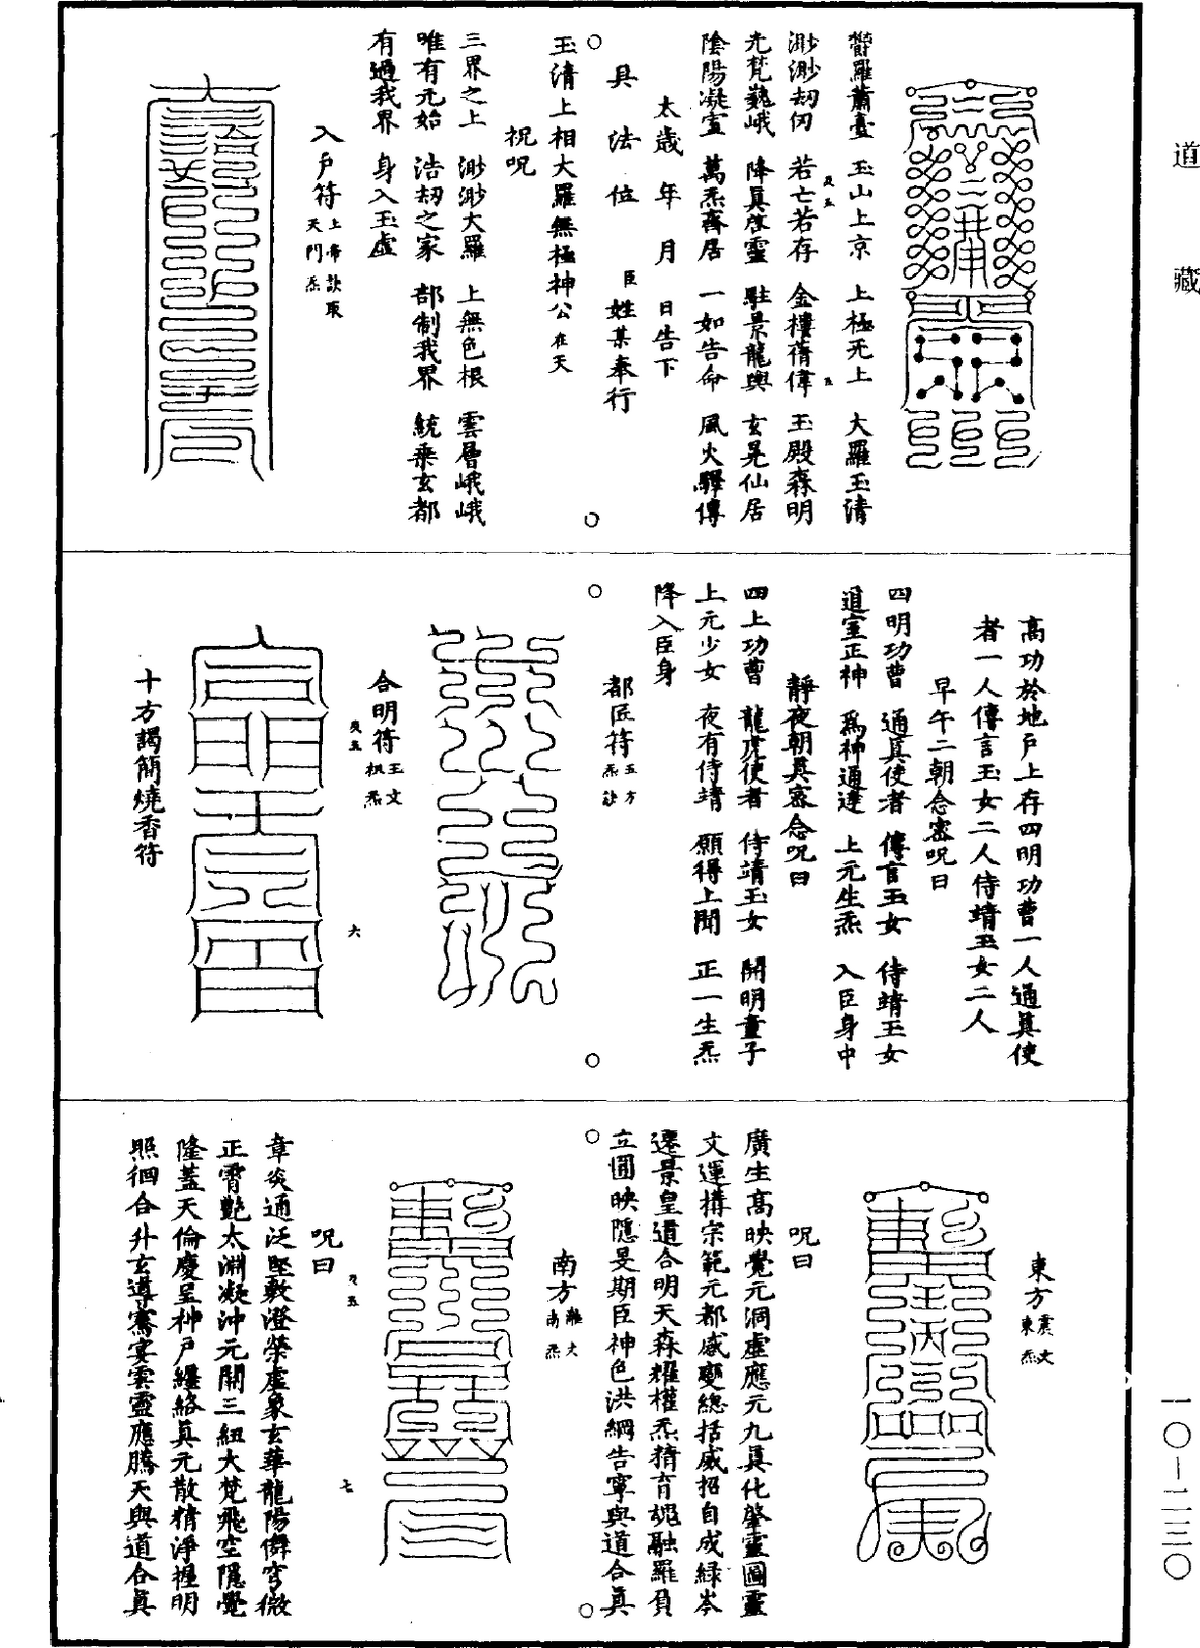 道藏
鬱羅蕭臺 玉山上京 上極无上 大羅玉清
渺渺劫仞 若亡若存 金樓 玉殿森明
光梵巍峨 降真啓靈 駐景龍輿 玄晃仙居
陰陽凝 萬炁齊居 一如告命 風火驛傳
太歲 年 月 日告下
具 法 位 臣姓某奉行
玉清上相大羅無極神公在天
祝呪
三界之上 渺渺大羅 上無色根 雲層峨峨
唯有元始 浩劫之家 部制我界 統乘玄都
有過我界 身入玉虛
入戶符上帝訣取天門炁
高功於地戶上存四明功曹一人通真使
者一人傳言玉女二人侍靖玉女二人
早午二朝念密呪曰
四明功曹 通真使者 傳言玉女 侍靖玉女
道室正神 爲神通達 上元生炁 入臣身中
靜夜朝真密念呪曰
四上功曹 龍虎使者 侍靖玉女 開明童子
上元少女 夜有侍靖 願得上聞 正一生炁
降入臣身
都匠符五方炁訣
合明符玉文祖炁
六
十方謁簡燒香符
東方震文東炁
呪曰
廣生高映覺元洞虛應元九真化肇靈圖靈
文運構宗範元都感變總括威招自成緑岑
遷景皇道合明天森耀權炁精育魂融羅負
立圓映隱旻期臣神色洪綱告寧與道合真
南方離文南炁
呪曰
七
章炎通泛堅敷澄榮虛象玄華龍陽儛穹微
正霄艷太淵凝沖元開三紐大梵飛空隱覺
隆蓋天倫慶呈神戶纏絡真元散精淨握明
照徊合升玄導騫宴雲靈應騰天與道合真
一〇－二三〇